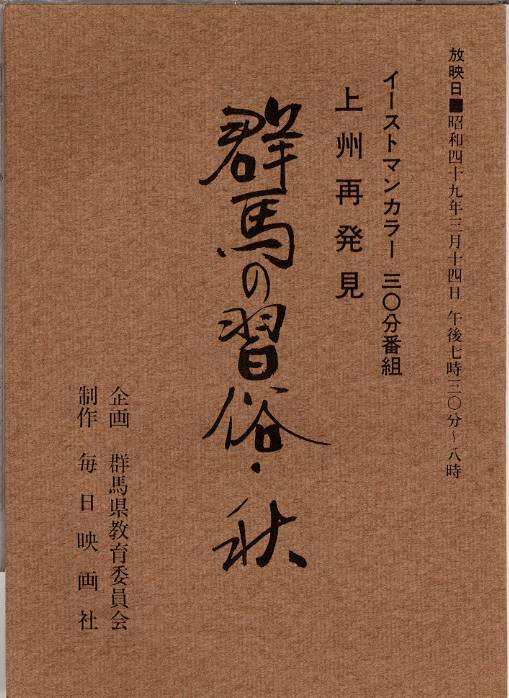 放映日■昭和四十九年三月十四日 午後七時三〇分～八時
イーストマンカラー 三〇分番組
上州再発見
群馬の習俗・秋
企画 群馬県教育委員会
制作 毎日映画社